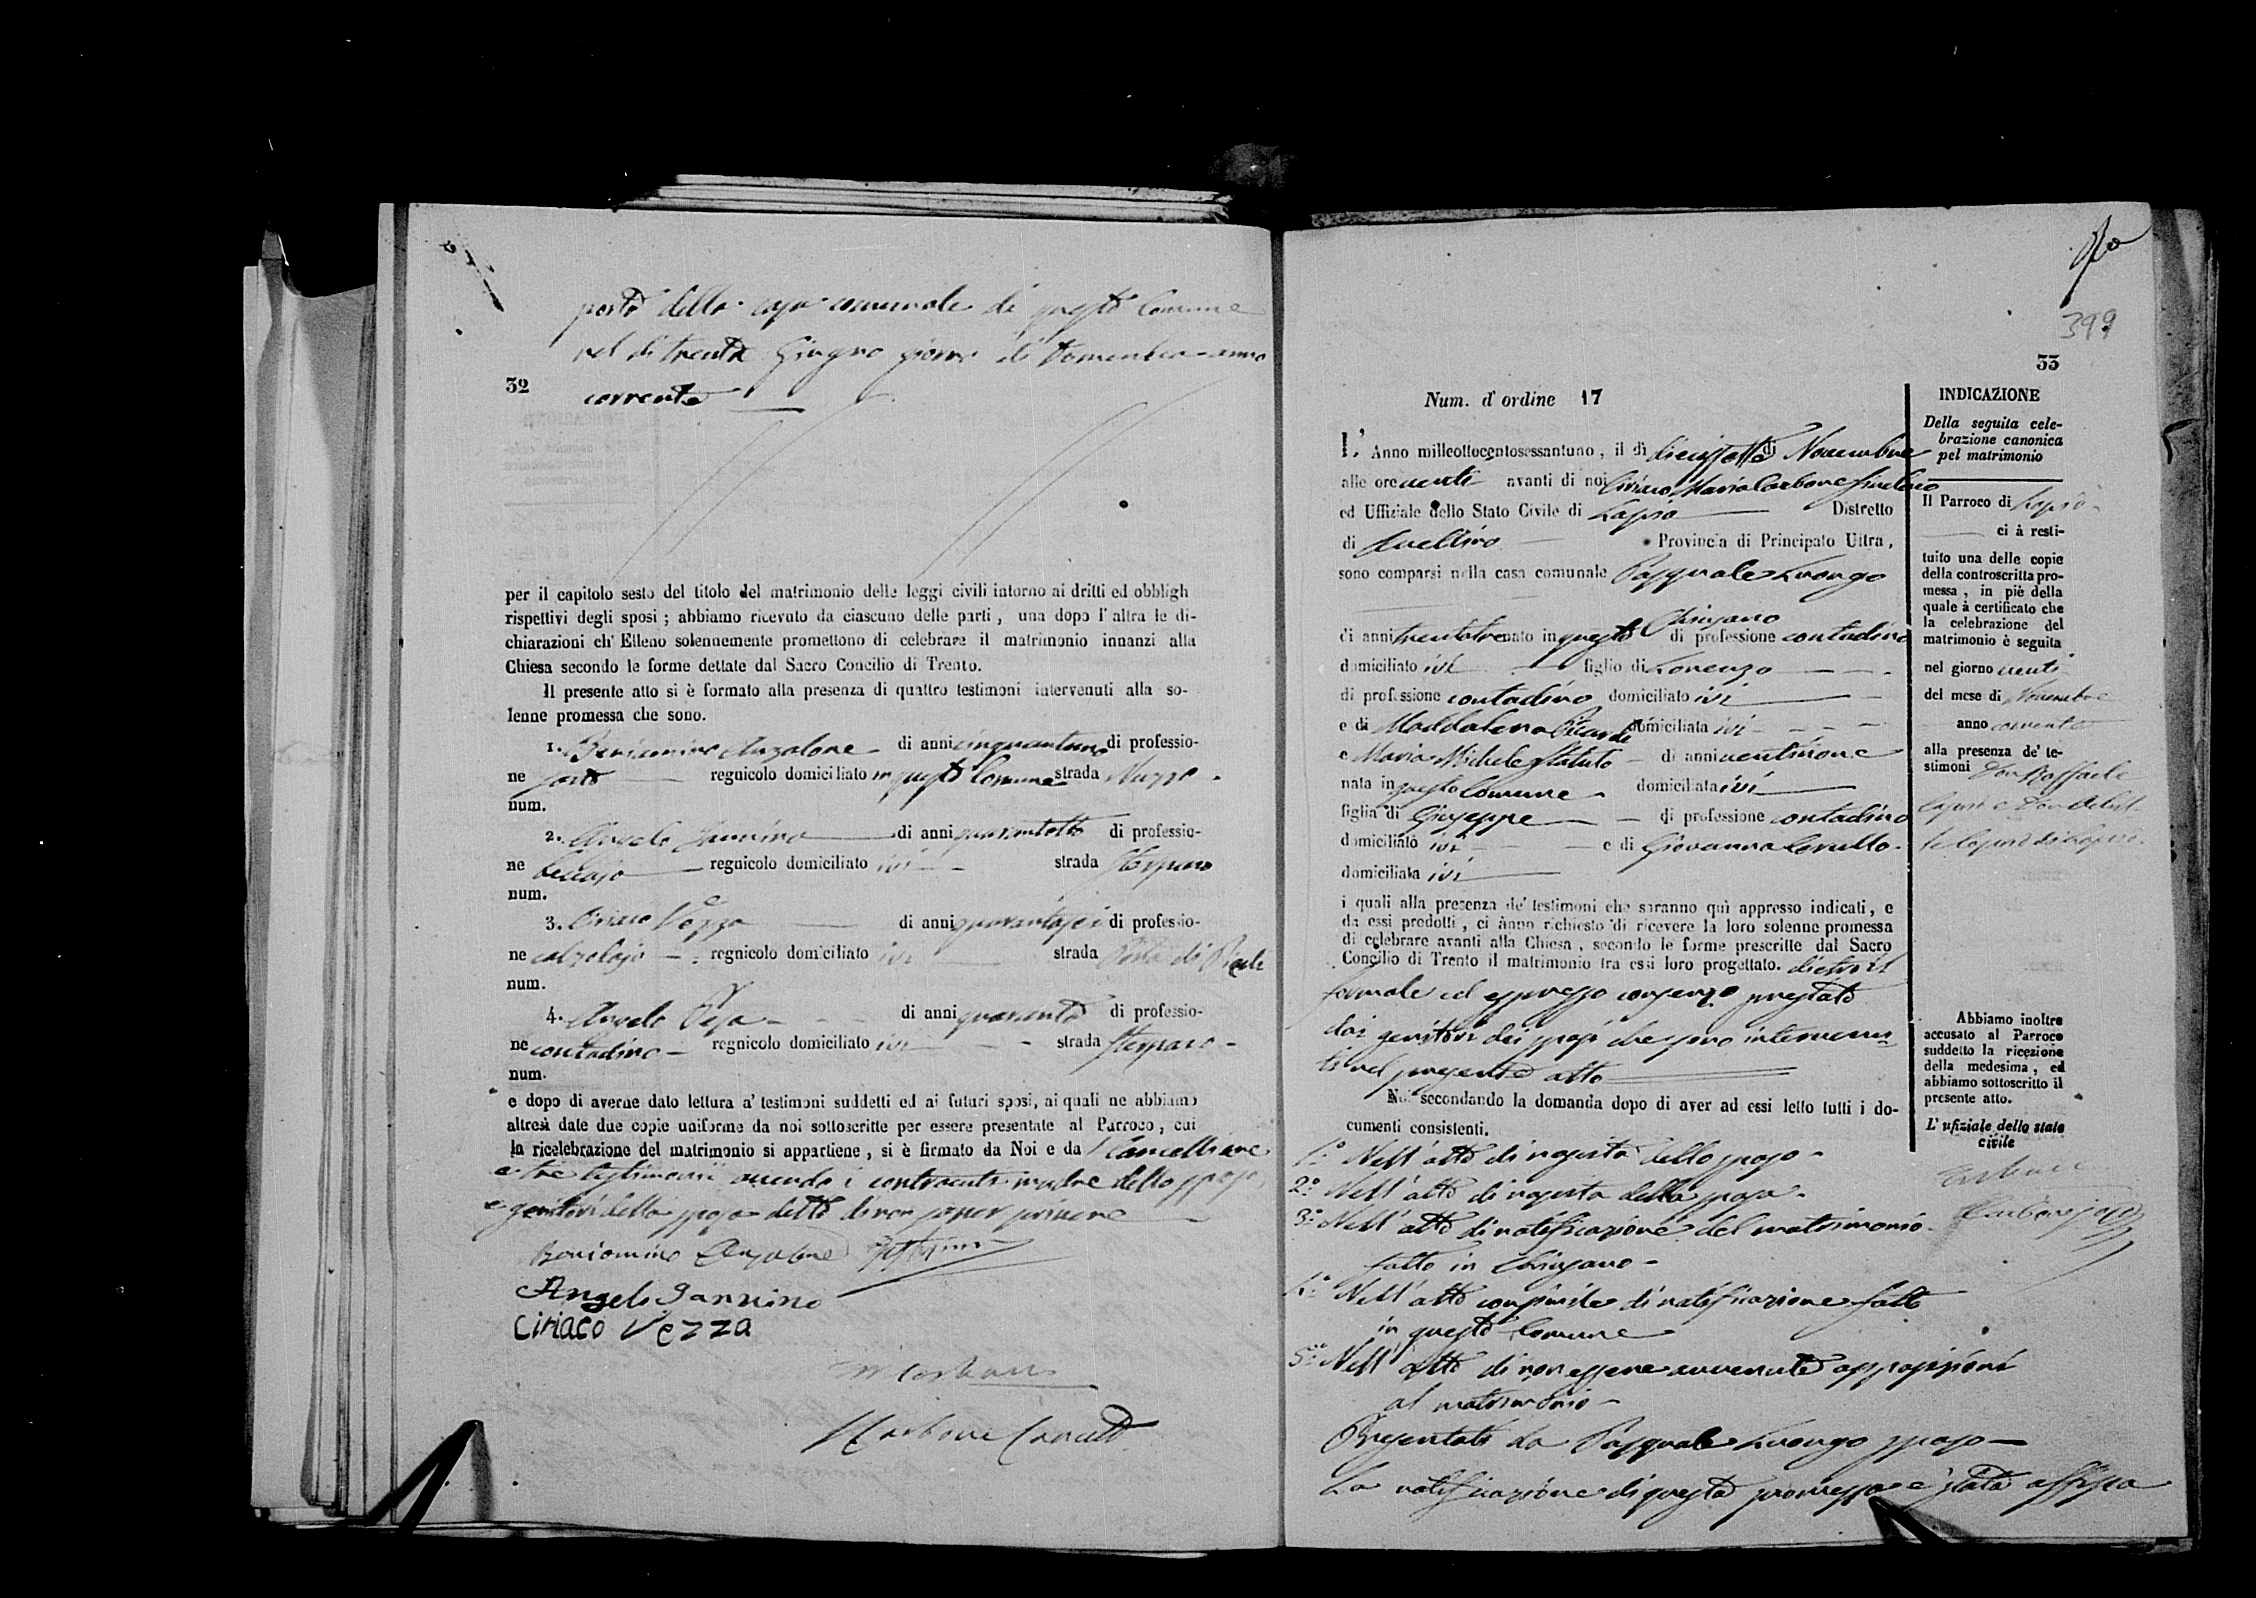 porta della casa comunale di questo Comune
nel dì trenta Giugno giorno di Domenica anno
32
corrente
per il capitolo sesto del titolo del matrimonio delle leggi civili intorno ai dritti ed obbligh
rispettivi degli sposi ; abbiamo ricevuto da ciascuno delle parti , una dopo l' altra le di-
chiarazioni ch' Elleno solennemente promettono di celebrare il matrimonio innanzi alla
Chiesa secondo le forme dettate dal Sacro Concilio di Trento.
Il presente atto si è formato alla presenza di quattro testimoni intervenuti alla so-
lenne promessa che sono.
1. Beniamino Anzalone di anni cinquantuno di professio-
ne sarto regnicolo domiciliato in questo Comune strada Nuzzo
num.
2. Angelo Iannino di anni quarantotto di professio-
ne beccajo regnicolo domiciliato ivi strada
num.
3. Ciriaco Vezza di anni quarantasei di professio-
ne calzolajo regnicolo domiciliato ivi strada
num.
4. Angelo di anni quaranta di professio-
ne contadino regnicolo domiciliato ivi strada
num.
e dopo di averne dato lettura a' testimoni suddetti ed ai futuri sposi, ai quali ne abbiamo
altresì date due copie uniforme da noi sottoscritte per essere presentate al Parroco , cui
la ricelebrazione del matrimonio si appartiene , si è firmato da Noi e da l Cancelliere
e tre testimonii avendo i contraenti madre dello sposo,
e genitori della sposa detto di non saper scrivere
Beniamino Anzalone
Angelo Iannino
Ciriaco Vezza
Carbone
399
33
Num. d' ordine 17
L' Anno milleottocentosessantuno , il dì dieciotto di Novembre
alle ore venti avanti di noi Ciriaco Maria Carbone Sindaco
ed Uffiziale dello Stato Civile di Lapio Distretto
di Avellino Provincia di Principato Ultra ,
sono comparsi nella casa comunale Pasquale Luongo
di anni trentatre nato in questo di professione contadino
domiciliato ivi figlio di Lorenzo
di professione contadino domiciliato ivi
e di Maddalena domiciliata ivi
e Maria Michela Statuto di anni ventinove
nata in questo Comune domiciliata ivi
figlia di Giuseppe di professione contadino
domiciliato ivi e di Giovanna
domiciliata ivi
i quali alla presenza de' testimoni che saranno quì appresso indicati , e
da essi prodotti , ci ànno richiesto di ricevere la loro solenne promessa
di celebrare avanti alla Chiesa , secondo le forme prescritte dal Sacro
Concilio di Trento il matrimonio tra essi loro progettato. dietro il
formale ed espresso consenzo prestato
dai genitori dei sposi che sono interveni
ti nel presente atto
Noi secondando la domanda dopo di aver ad essi letto tutti i do-
cumenti consistenti.
1.° Nell' atto di nascita dello sposo
2.° Nell' atto di nascita della sposa
3.° Nell' atto di notificazione del matrimonio
fatto in
4.° Nell' atto consimile di notificazione fatto
in questo Comune
5.° Nell' atto di non essere avvenute opposizioni
al matrimonio
Presentati da Pasquale Luongo sposo
La notificazione di questa promessa è stata affissa
INDICAZIONE
Della seguita cele-
brazione canonica
pel matrimonio
Il Parroco di Lapio
ci à resti-
tuito una delle copie
della controscritta pro-
messa , in piè della
quale à certificato che
la celebrazione del
matrimonio è seguita
nel giorno venti
del mese di Novembre
anno corrente
alla presenza de' te-
stimoni Don Raffaele
Abbiamo inoltre
accusato al Parroco
suddetto la ricezione
della medesima , ed
abbiamo sottoscritto il
presente atto.
L' ufiziale dello stato
civile
Carbone